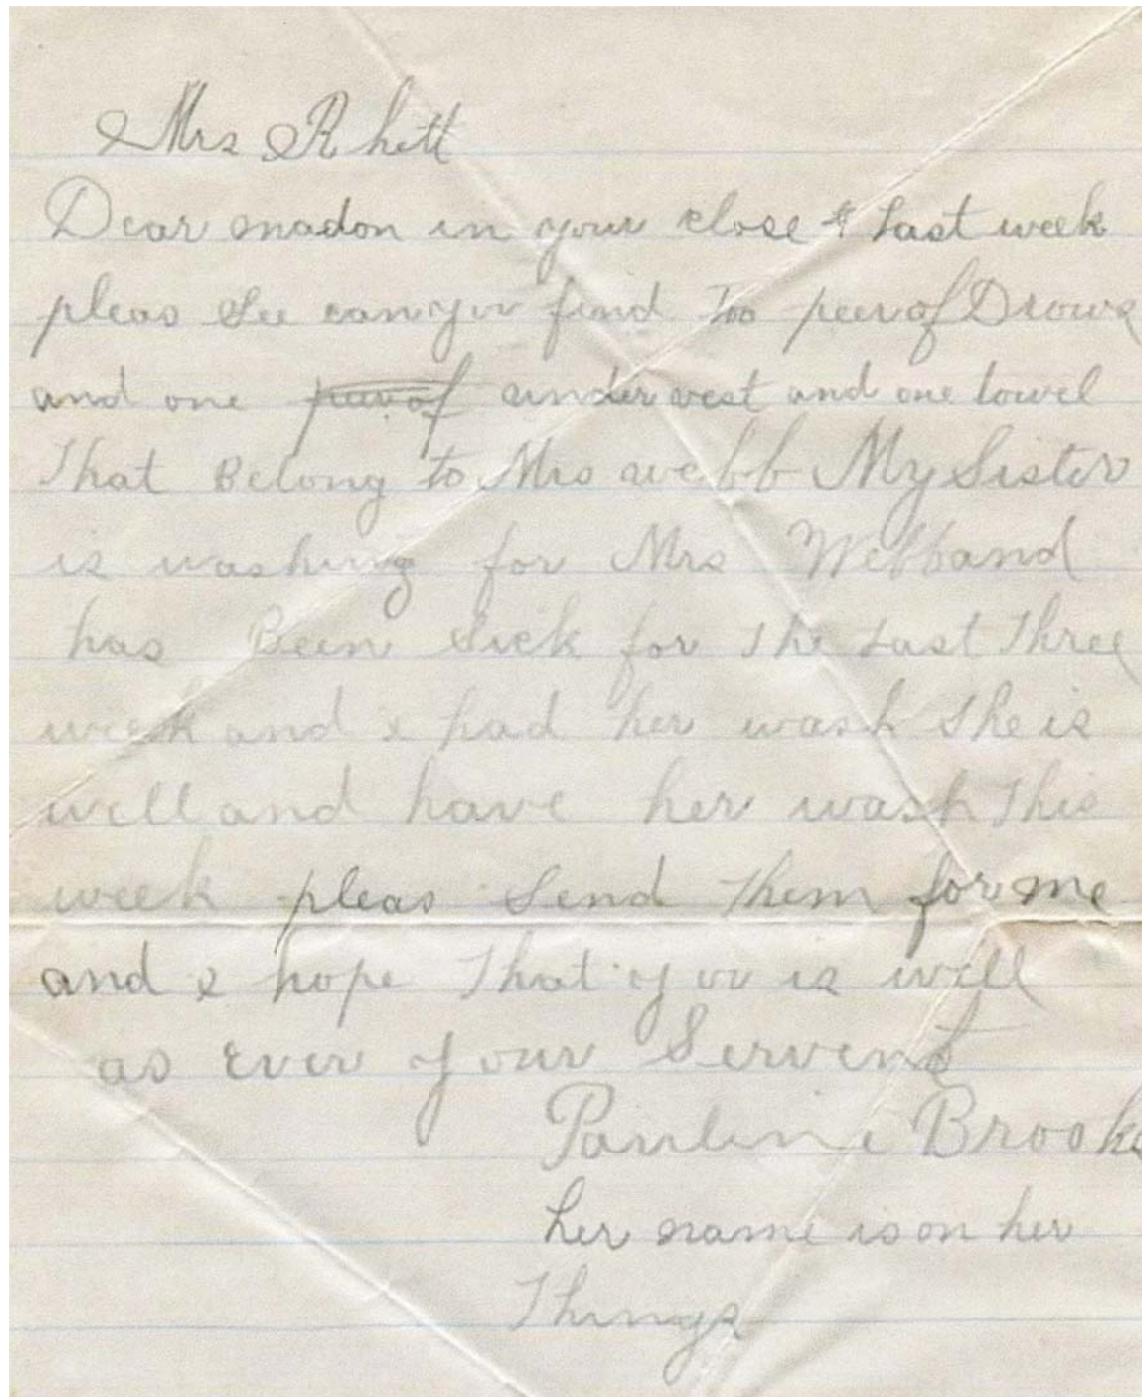 Mrs Rhett
Dear madon in your close last week
pleas See can you find Too peer of Drows
and one peer of under vest and one towel
That Belong to Mrs webb My Sister
is washing for Mrs Webb and
has Been Sick for The Last Three
week and i had her wash She is
well and have her wash This
week pleas Send Them for me
and i hope That you is well
as ever your Servent
Pauline Brooks
her name is on her
Things